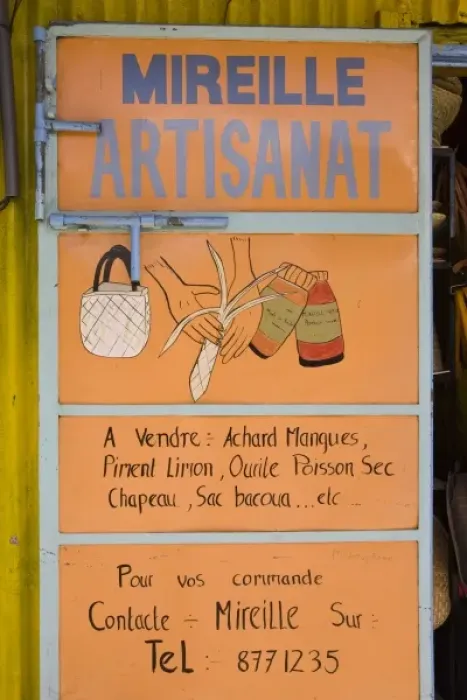 MIREILLE
ARTISANAT
A Vendre : Achard Mangues,
Piment Limon, Ourite Poisson Sec
Chapeau, Sac bacoua...etc...
Pour vos commande
Contacte ÷ Mireille Sur :
TeL : 877 1235